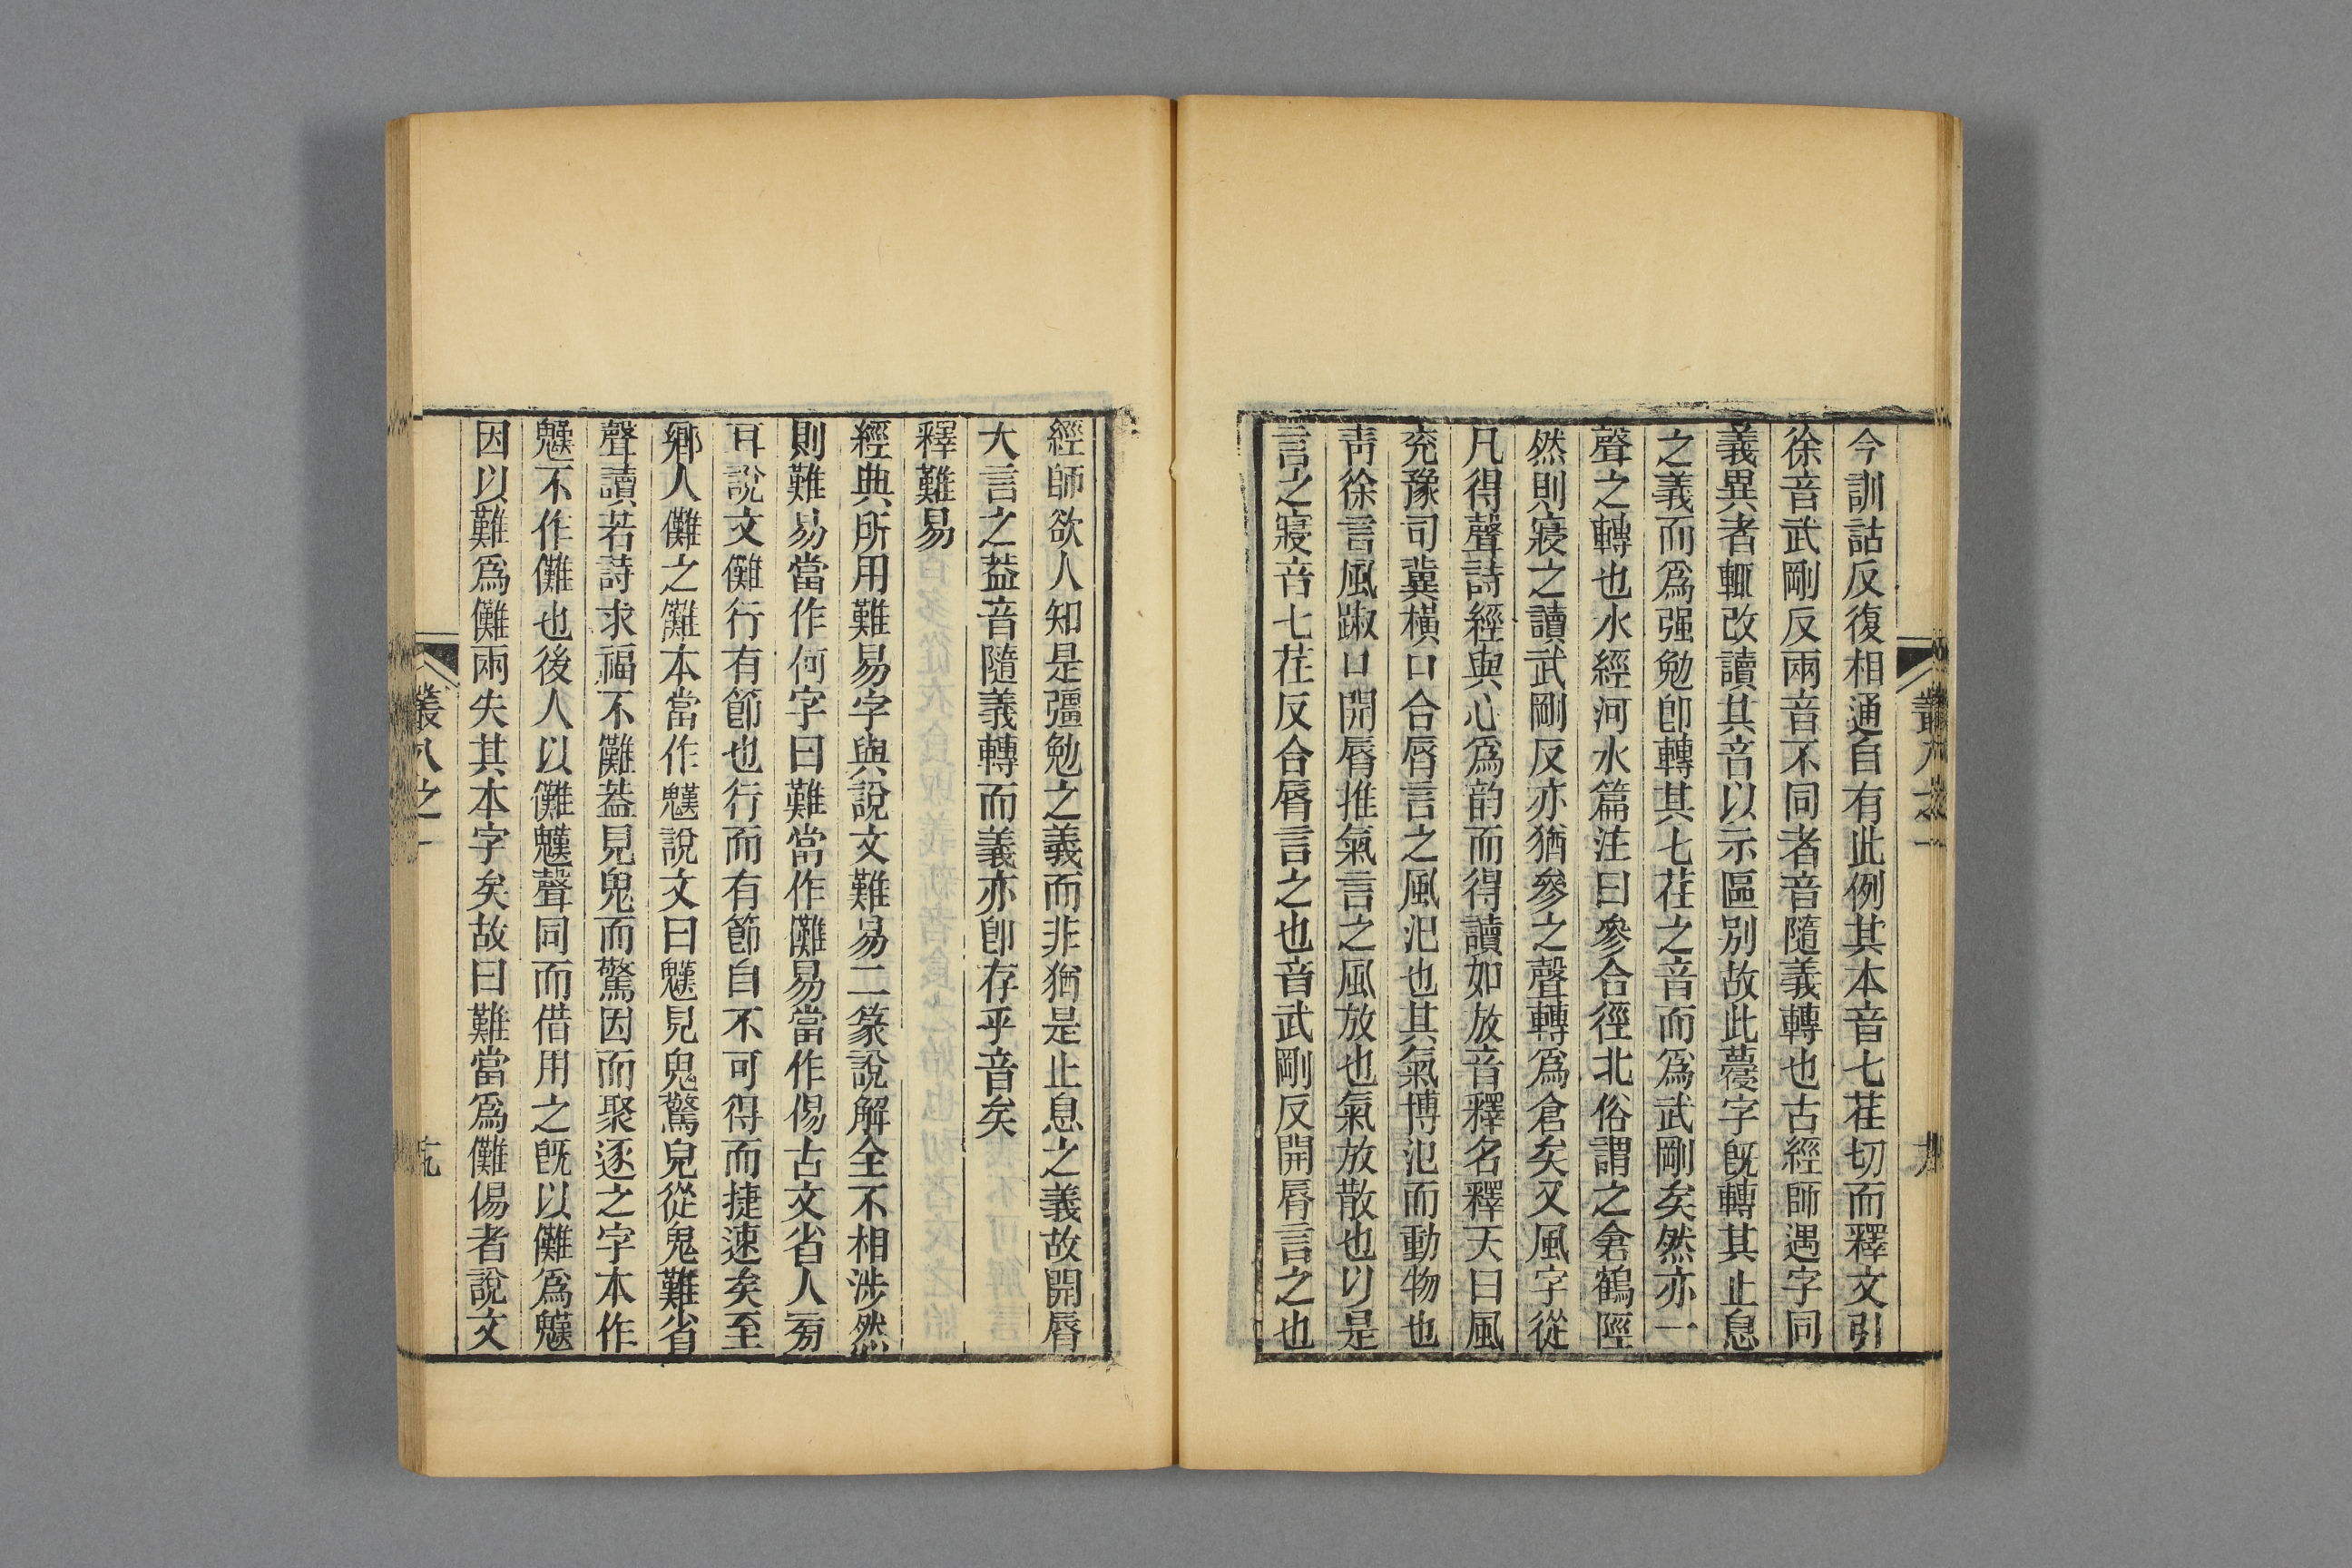 今訓詁反復相通自有此例其本音七荏切而釋文引
徐音武剛反兩音不同者音隨義轉也古經師遇字同
義異者輒改讀其音以示區別故此蔓字旣轉其止息
之義而爲强勉卽轉其七荏之音而爲武剛矣然亦一
聲之轉也水經河水篇注曰參合徑北俗謂之倉鶴陘
然則寢之讀武剛反亦猶參之聲轉爲倉矣又風字從
凡得聲詩經與心爲韵而得讀如放音釋名釋天曰風
兖豫司冀橫口合脣言之風氾也其氣博氾而動物也
靑徐言風踧口開脣推氣言之風放也氣放散也以是
言之寢音七荏反合脣言之也音武剛反開脣言之也
叢八之一
經師欲人知是彊勉之義而非猶是止息之義故開脣
大言之葢音隨義轉而義亦卽存乎音矣
釋難易
經典所用難易字與說文難易二篆說解全不相涉然
則難易當作何字曰難當作儺易當作傷古文省人㫄
耳說文儺行有節也行而有節自不可得而捷速矣至
鄉人儺之儺本當作魌說文曰魌見鬼驚皃從鬼難省
聲讀若詩求福不儺葢見鬼而驚因而聚逐之字本作
魌不作儺也後人以儺魌聲同而借用之旣以儺爲魌
因以難爲儺兩失其本字矣故曰難當爲儺傷者說文
叢八之一